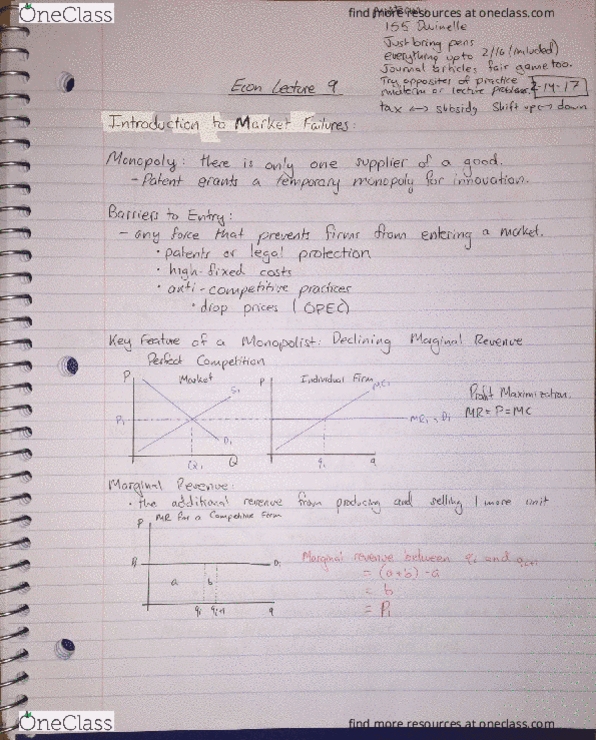 OneClass
find more resources at oneclass.com
155 Dwinelle
Just bring pens
everything up to 2/16 (included)
Journal articles fair game too.
Try opposites of practice
midterm or lecture problems.
2-14-17
tax <-> subsidy Shift up <-> down
Econ Lecture 9
Introduction to Market Failures:
Monopoly: there is only one supplier of a good.
- Patent grants a temporary monopoly for innovation.
Barriers to Entry:
- any force that prevents firms from entering a market.
• patents or legal protection
• high-fixed costs
• anti-competitive practices
• drop prices (OPEC)
Key Feature of a Monopolist: Declining Marginal Revenue
Perfect Competition
P Market S₁ P₁ D₁ Q₁ Q
P Individual Firm MC₁ MR₁ = D₁ q₁ q
Profit Maximization.
MR = P = MC
Marginal Revenue:
• the additional revenue from producing and selling 1 more unit
P MR for a Competitive Firm
P₁ D₁
a b
q
Marginal revenue between
= (a+b) - a
= b
= P₁
OneClass
find more resources at oneclass.com